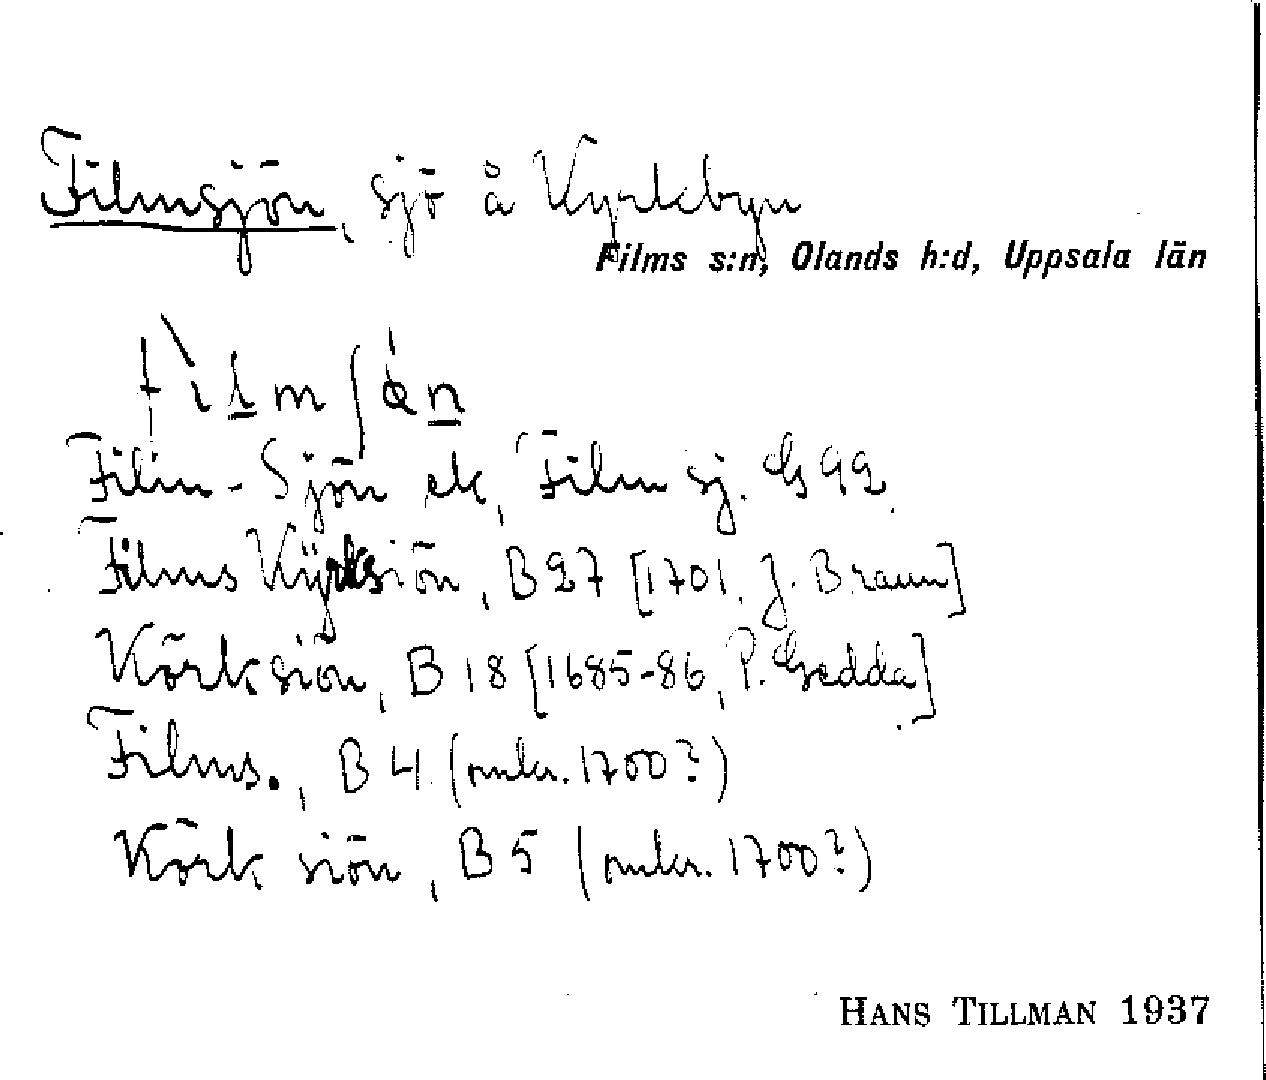 Filmsjön, sjö å Kyrkbyn
Films s:n, Olands h:d, Uppsala län
Film-Sjön ek, Film sj. GS 92.
Films Kÿrksiön, B 27 [1701. J. Braun]
Körksiön, B 18 [1685-86, P. Gedda]
Films., B 4 (omkr. 1700?)
Körk siön, B 5 (omkr. 1700?)
HANS TILLMAN 1937